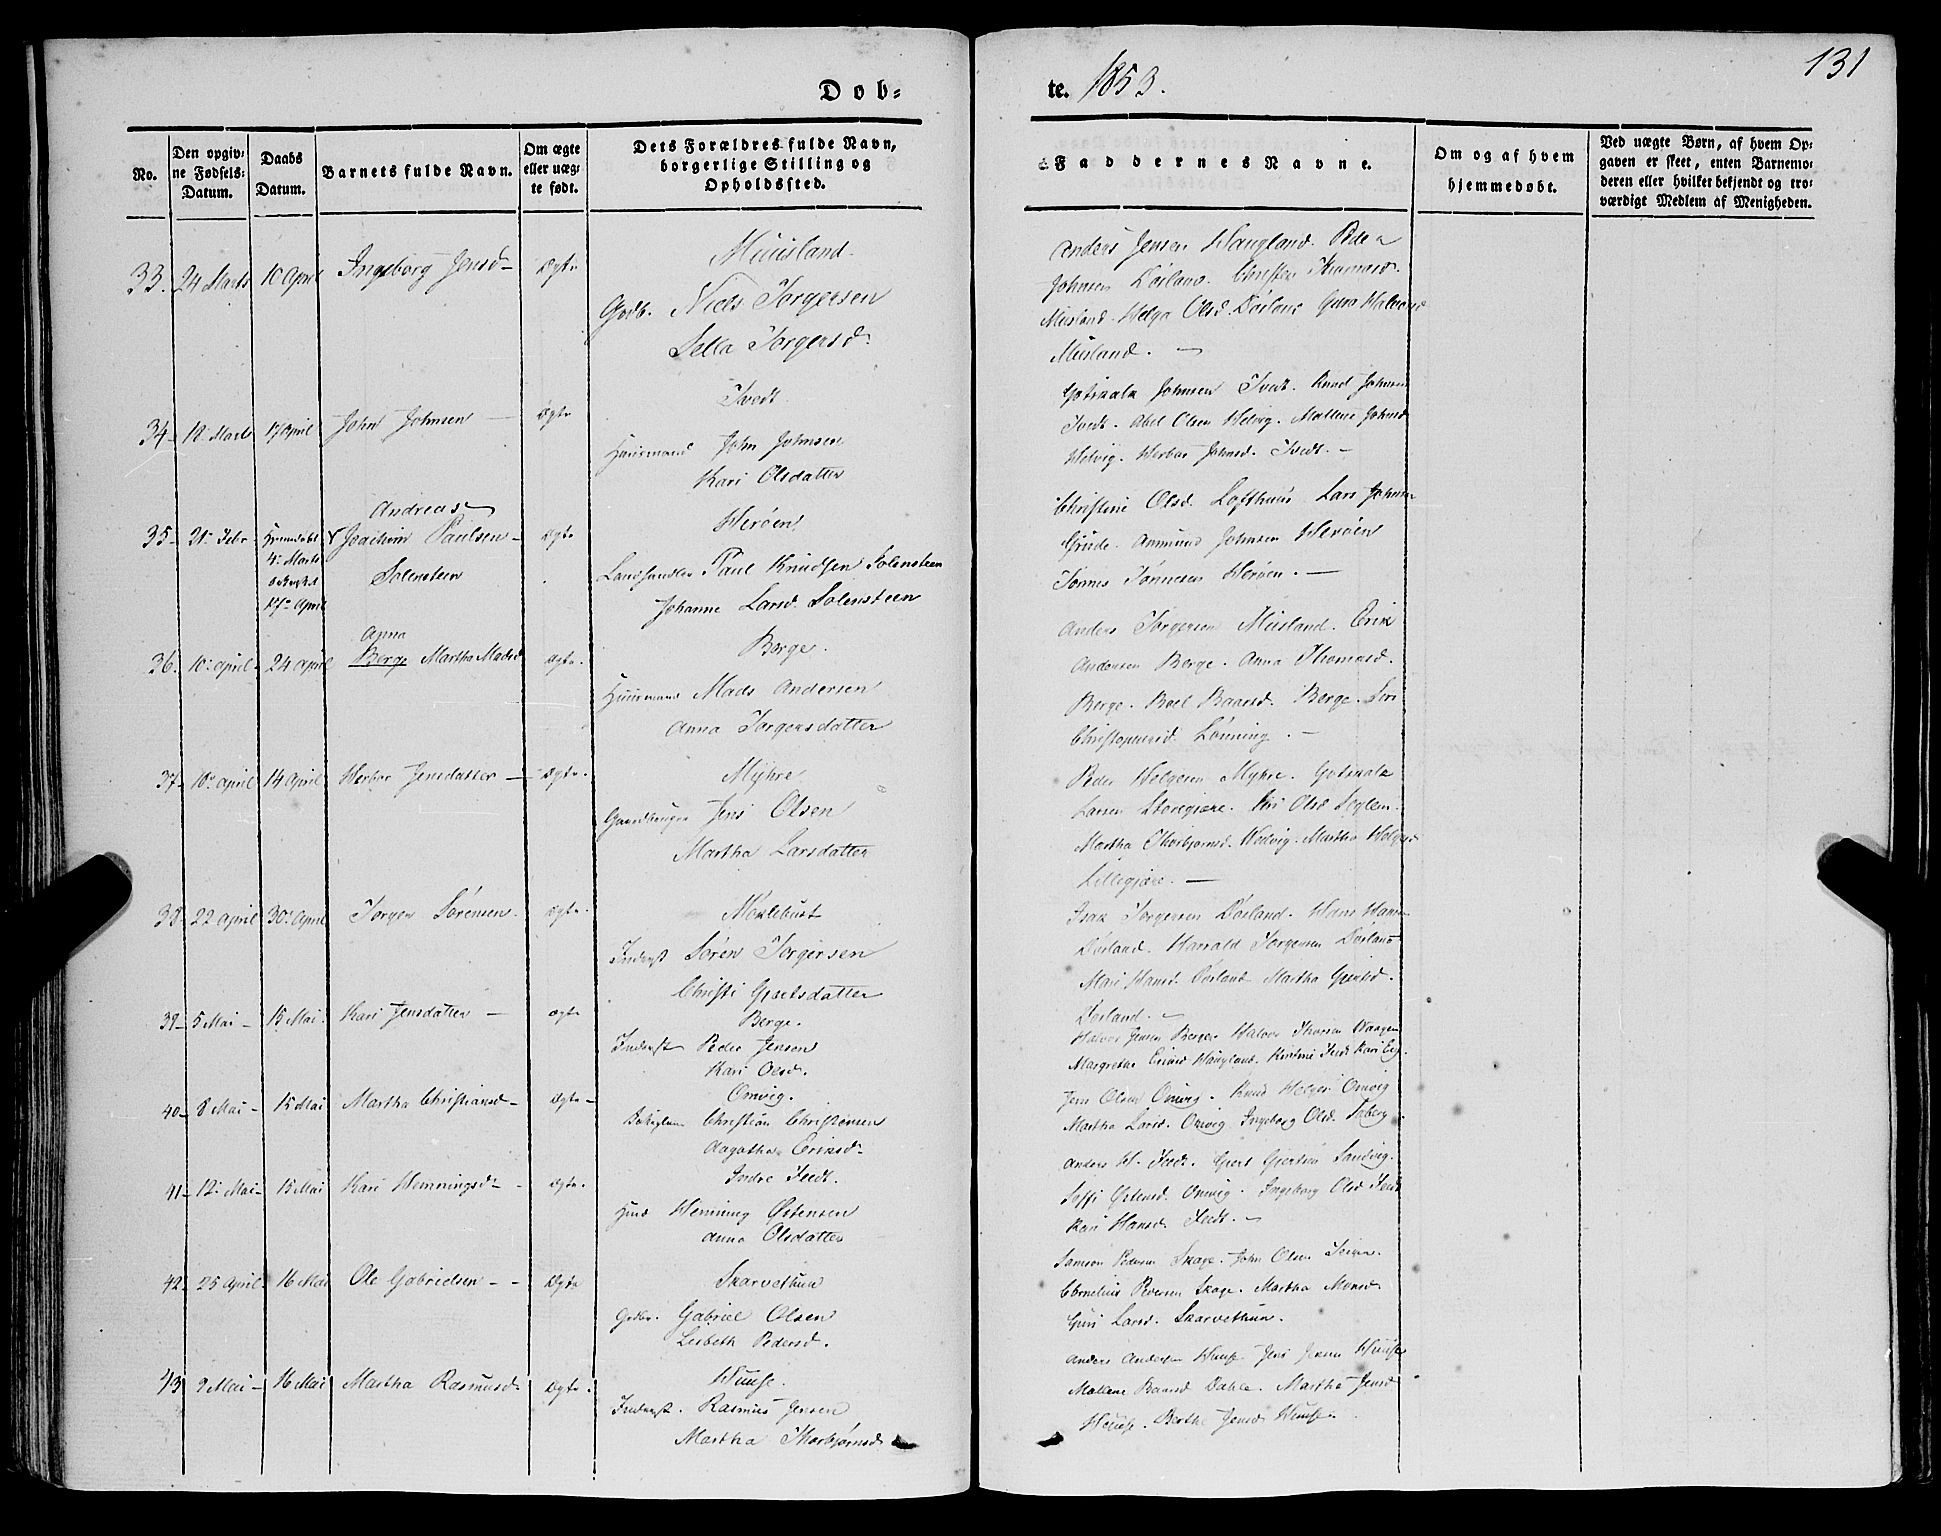 Døb=
te. 1853.
131
No.
Den opgiv=
ne Fødsels=
Datum.
Daabs
Datum.
Barnets fulde Navn.
Om ægte
eller uæg=
te født.
Dets Forældres fulde Navn,
borgerlige Stilling og
Opholdssted.
Faddernes Navne.
Om og af hvem
hjemmedøbt.
Ved uægte Børn, af hvem Op=
gaven er skeet, enten Barnemo=
deren eller hvilket bekjendt og tro=
værdigt Medlem af Menigheden.
33. 24 Marts 10 April Ingeborg Jensd Ægte
Muusland
Gbdb. Niels Torgersen
Torgersd.
Anders Jensen Haugland. Peder
Johnsen Døsland. Christen
Musland. Helga Olsd. Døsland Guro Halvorsd
Musland. —
34 18 Marts 17 April John Johnsen — Ægte
Tvedt
Huusmand John Johnsen
Kari Olsdatter
Gotskalk Johnsen Tvedt. Knud Johnsen
Tvedt. Abel Olsen Helvig. Mallene Johnsd
Helvig. Herbor Johnsd. Tvedt. —
35 21 Febr Hjemdøbt
4 Marts
17 April
Andreas
Joachim Paulsen
Solensteen
Ægte
Herøen
Landhandler Paul Knudsen Solensteen
Johanne Larsd. Solensteen
Christine Olsd. Lofthuus Lars Johnsen
Grude. Anmund Johnsen Herøen
Tønnes Tønnesen Herøen. —
36. 10 April 24 April
Anna
Berge Martha Madsd Ægte.
Berge.
Huusmand Mads Andersen
Anna Torgersdatter
Anders Torgersen Musland. Erik
Andersen Berge. Anna Thomasd.
Berge. Boel Baarsd. Berge.
Lønning. —
37 10 April 14 April Herbor Jensdatter — Ægte.
Myhre
Gaardbruger Jens Olsen
Martha Larsdatter
Peder Helgesen Myhre. Gotskalk
Larsen Storegjære. Olsd Seglem.
Martha Thorbjørnsd. Helvig. Martha Helgesd
Lillegjære. —
38 22 April 30 April Torger Sørensen. Ægte.
Moxlebust
Inderst Søren Torgersen
Christi Gjertsdatter
Isak Torgersen Døsland. Hans Hansen
Døsland. Harrald Torgersen Døsland
Mari Hansd. Døsland Martha Gjertsd.
Døsland. —
39 5 Mai 15 Mai Kari Jensdatter — Ægte
Berge.
Inderst Peder Jensen
Kari Olsd.
Halvor Jensen Berge. Halvor Thorsen Waagen
Margrethe Eriksd Haugland.
40 8 Mai 15 Mai Martha Christiansd Ægte
Omvig.
Christian Christensen
Aagatha Eriksd.
Jens Olsen Omvig. Knud Helges Omvig
Martha Larsd. Omvig Ingeborg Olsd.
41 12 Mai 15 Mai Kari Henningsd Ægte.
Indre Tvedt.
Huusm Henning Østensen
Anna Olsdatter
Anders H. Tvedt. Gjert Gjertsen Sandvig.
Østensd. Omvig. Ingeborg Olsd Tvedt
Kari Hansd. Tvedt. —
42 25 April 16 Mai Ole Gabrielsen — Ægte
Skarvethun
Gbdbr. Gabriel Olsen
Lisbeth Pedersd.
Samson Pedersen Skage. John Olsen
Cornelius Pedersen Skage. Martha Monsd.
Guri Larsd. Skarvethun.
43 9 Mai 16 Mai Martha Rasmusd Ægte.
Huuse.
Inderst. Rasmus Jensen
Martha Thorbjørnsd
Anders Andersen Huuse Jens Jensen Huuse
Mallene Baarsd Dahle. Martha Jensd
Huuse. Berthe Jensd Huuse.